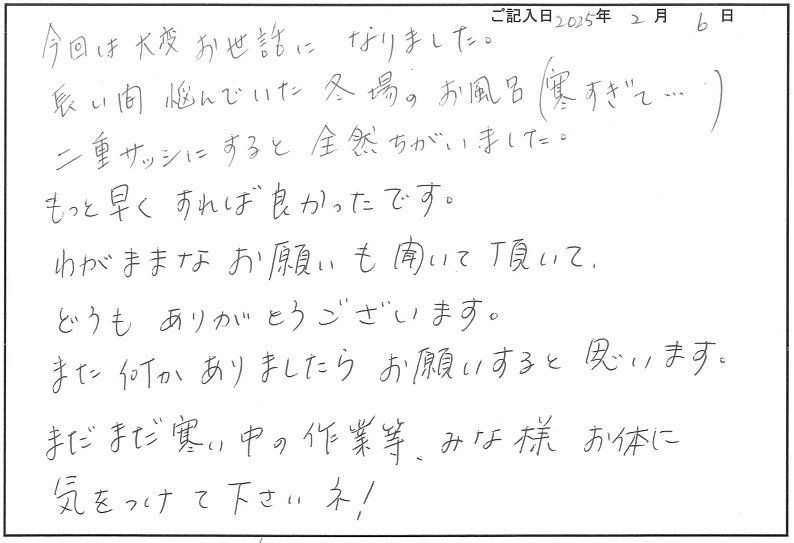 ご記入日2025年 2月 6日
今回は大変お世話に なりました。
長い間 悩んでいた 冬場の お風呂(寒すぎて…)
二重サッシにすると 全然ちがいました。
もっと早く すれば良かったです。
わがままな お願いも 聞いて頂いて、
どうも ありがとうございます。
また何か ありましたら お願いすると 思います。
まだまだ寒い中の作業等、みな様 お体に
気をつけて下さいネ!